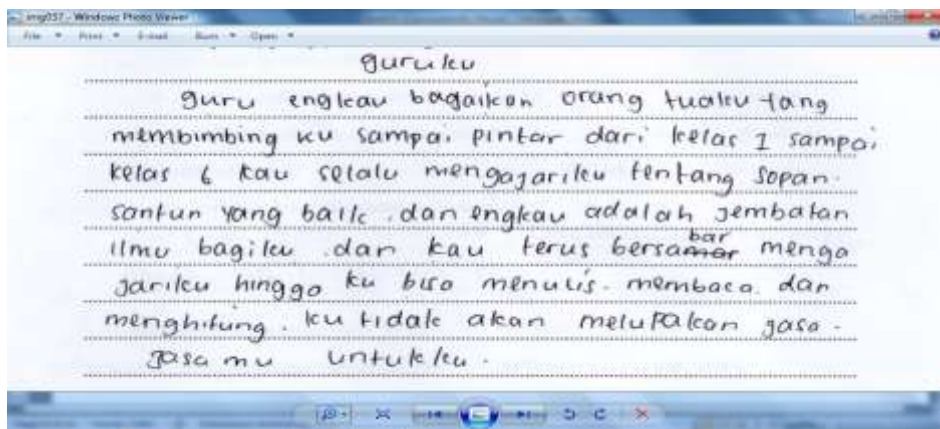 img037 - Windows Photo Viewer
File Print E-mail Burn Open
guruku
guru engkau bagaikan orang tuaku yang
membimbing ku sampai pintar dari kelas 1 sampai
kelas 6 kau selalu mengajariku tentang sopan.
santun yang baik. dan engkau adalah jembatan
ilmu bagiku. dan kau terus bersabar menga
jariku hinggo ku biso menulis. membaca. dan
menghitung. ku tidak akan melupakan jasa-
jasa mu untukku.